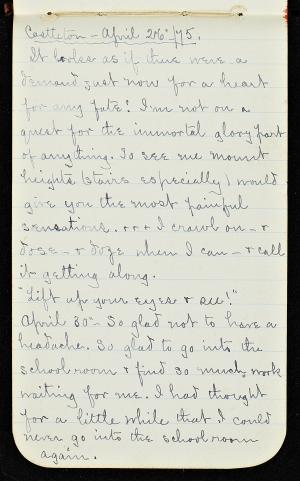 Castleton - April 26th/75.
It looks as if there were a
demand just now for a heart
for any fate! I'm not on a
quest for the immortal glory part
of anything. To see me mount
heights (stairs especially) would
give you the most painful
sensations. + + + I crawl on - &
dose - & doze when I can - & call
it getting along.
"Lift up your eyes & see!"
April 30th - So glad not to have a
headache. So glad to go into the
school room & find so much work
waiting for me. I had thought
for a little while that I could
never go into the schoolroom
again.